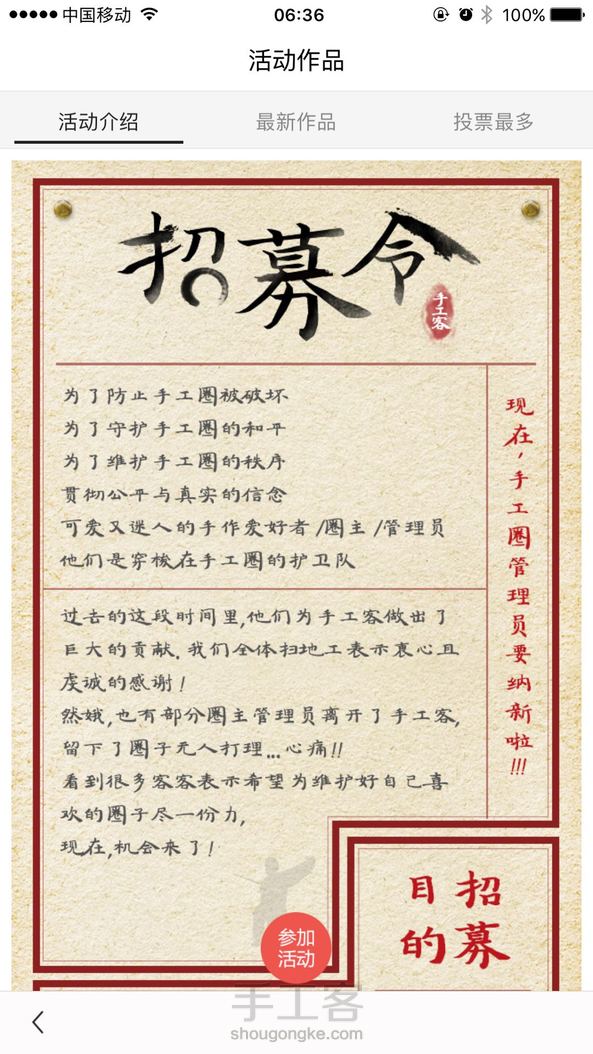 中国移动
06:36
100%
活动作品
活动介绍
最新作品
投票最多
招募令
手工客
为了防止手工圈被破坏
为了守护手工圈的和平
为了维护手工圈的秩序
贯彻公平与真实的信念
可爱又迷人的手作爱好者/圈主/管理员
他们是穿梭在手工圈的护卫队
现在，手工圈管理员要纳新啦!!!
过去的这段时间里,他们为手工客做出了
巨大的贡献. 我们全体扫地工表示衷心且
虔诚的感谢!
然娥,也有部分圈主管理员离开了手工客,
留下了圈子无人打理...心痛!!
看到很多客客表示希望为维护好自己喜
欢的圈子尽一份力,
现在,机会来了!
招募
目的
参加
活动
手工客
shougongke.com